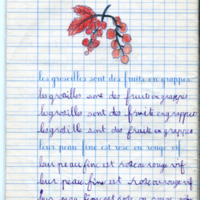 les groseilles sont des fruits en grappes
les groseilles sont des fruits en grappes
les groseilles sont des fruits en grappes
les groseilles sont des fruits en grappes
leur peau fine est rose ou rouge vif
leur peau fine est rose ou rouge vif
leur peau fine est rose ou rouge vif
leur peau fine est rose ou rouge vif